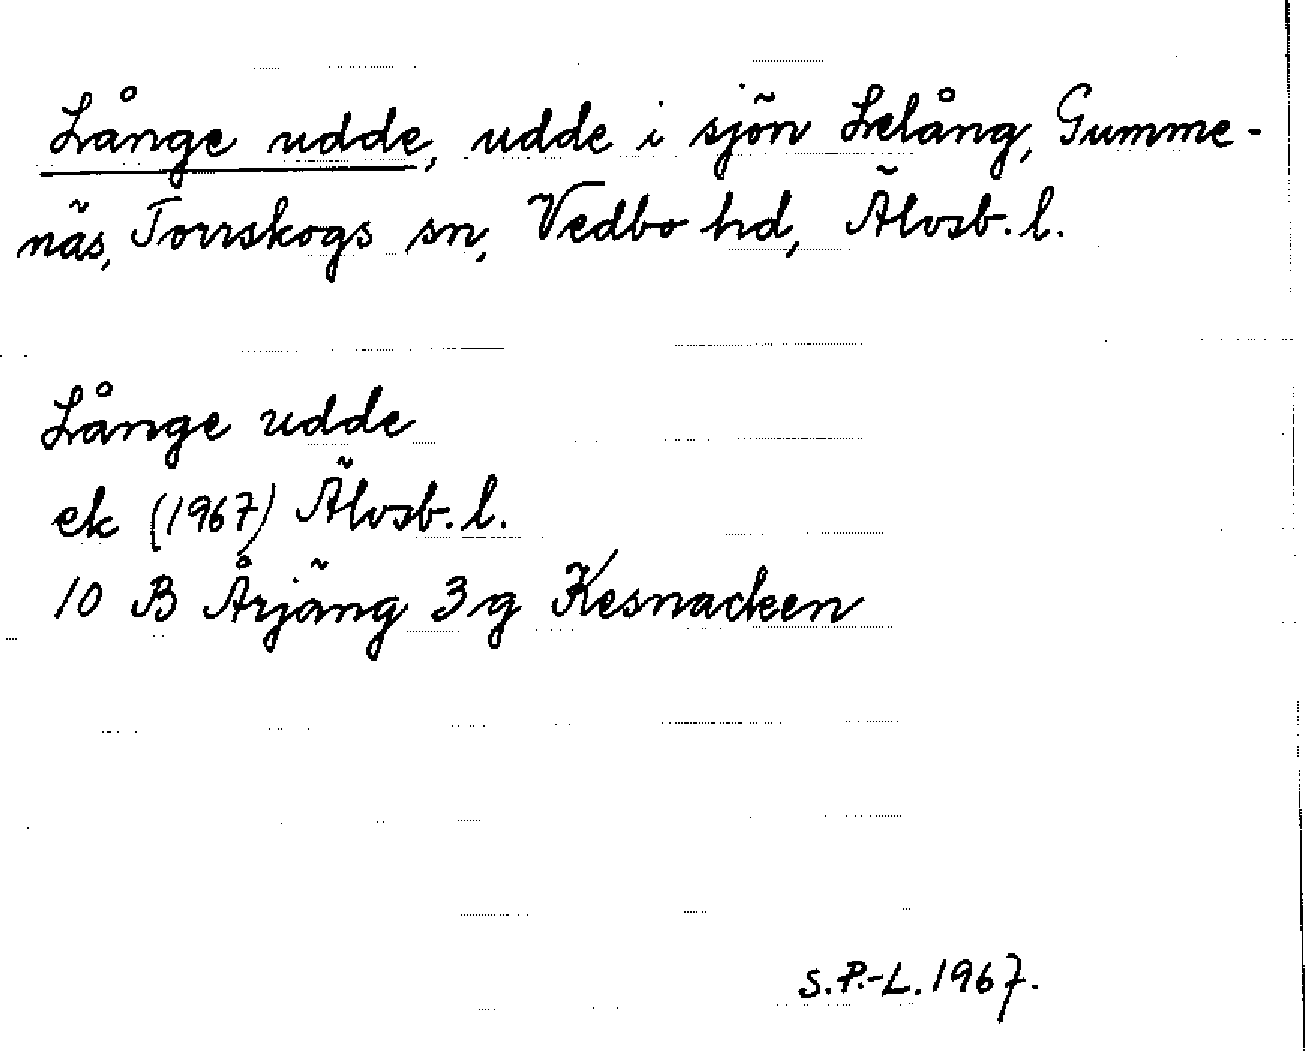 Långe udde, udde i sjön Lelång, Gumme-
näs, Torrskogs sn, Vedbo hd, Älvsb. l.
Långe udde
ek (1967) Älvsb. l.
10 B Årjäng 3 g Kesnacken
S.P.-L. 1967.